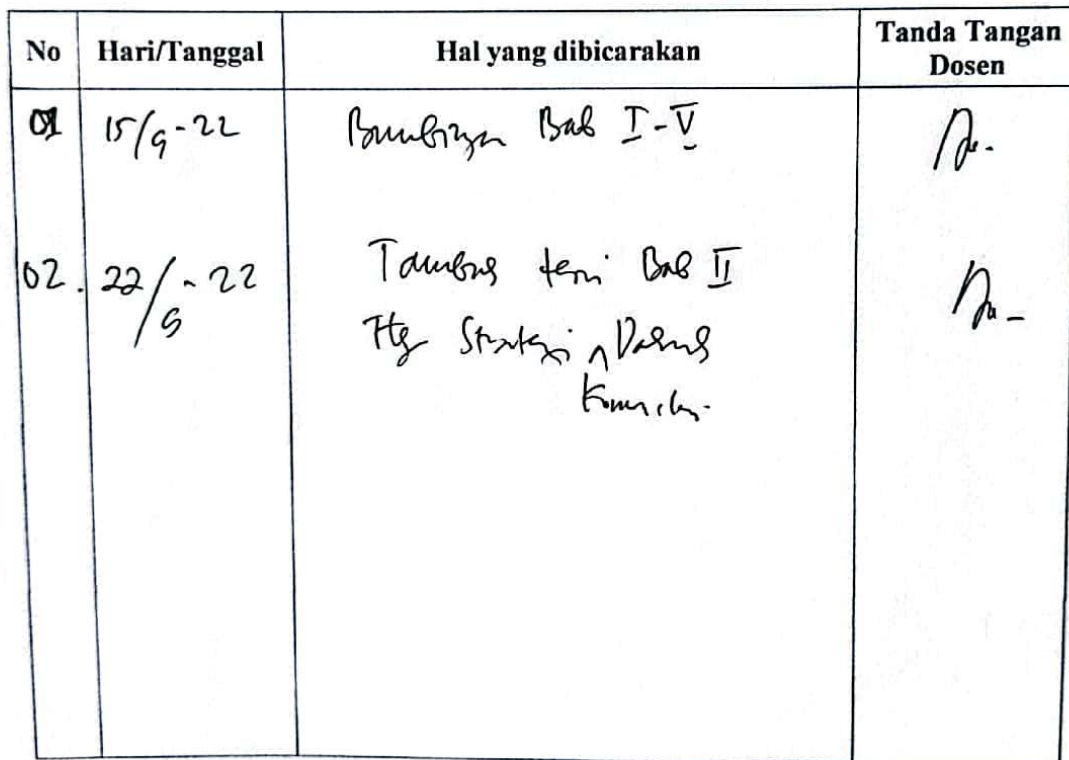 No Hari/Tanggal Hal yang dibicarakan Tanda Tangan Dosen
01 15/9-22 Bimbingan Bab I-V
02. 22/9-22 Tambah teori Bab II
Ttg Strategi Dakwah